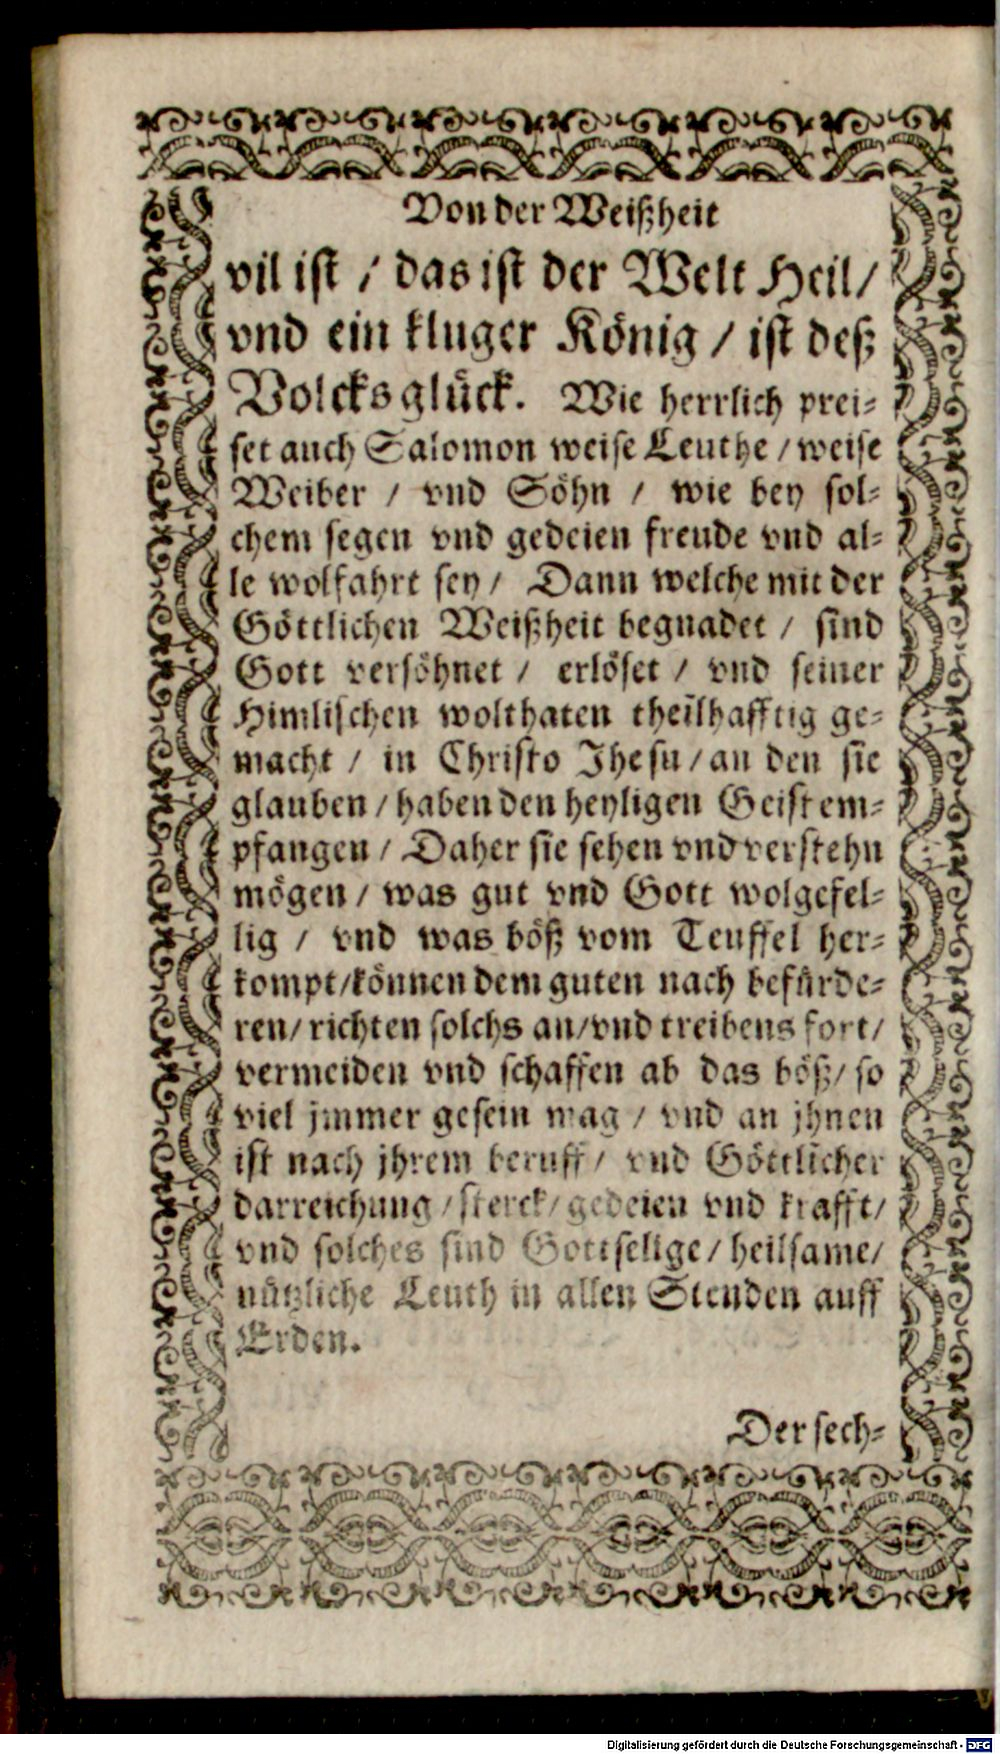 Von der Weißheit
vil ist / das ist der Welt Heil /
vnd ein kluger König / ist deß
Volcks glück. Wie herrlich prei⸗
set auch Salomon weise Leuthe / weise
Weiber / vnd Söhn / wie bey sol⸗
chem segen vnd gedeien freude vnd al⸗
le wolfahrt sey / Dann welche mit der
Göttlichen Weißheit begnadet / sind
Gott versöhnet / erlöset / vnd seiner
Himlischen wolthaten theilhafftig ge⸗
macht / in Christo Jhesu / an den sie
glauben / haben den heyligen Geist em⸗
pfangen / Daher sie sehen vnd verstehn
mögen / was gut vnd Gott wolgefel⸗
lig / vnd was böß vom Teuffel her⸗
kompt / können dem guten nach befürde⸗
ren / richten solchs an / vnd treibens fort /
vermeiden vnd schaffen ab das böß / so
viel jmmer gesein mag / vnd an jhnen
ist nach jhrem beruff / vnd Göttlicher
darreichung / sterck / gedeien vnd krafft /
vnd solches sind Gottselige / heilsame /
nützliche Leuth in allen Stenden auff
Erden.
Der sech⸗
Digitalisierung gefördert durch die Deutsche Forschungsgemeinschaft - DFG